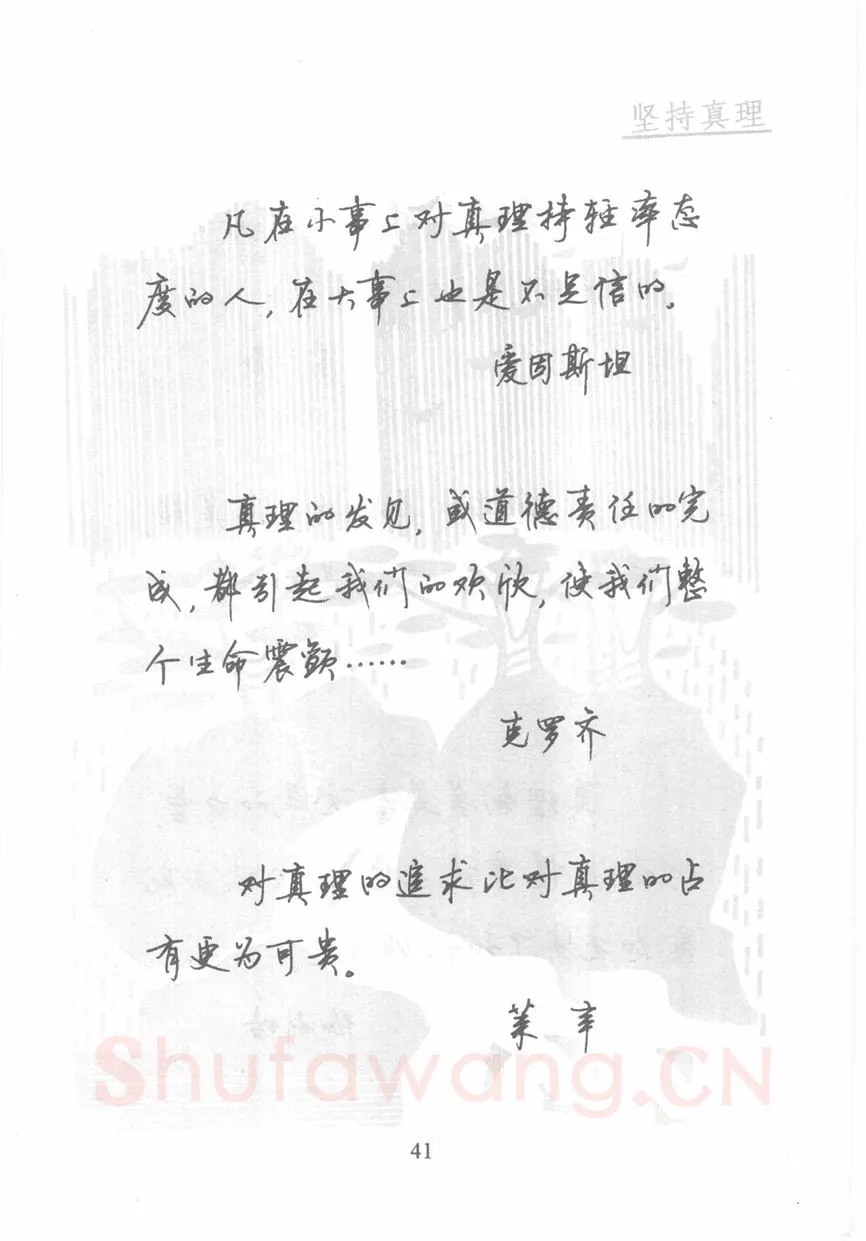 坚持真理
凡在小事上对真理持轻率态
度的人,在大事上也是不足信的。
爱因斯坦
真理的发见,或道德责任的完
成,都引起我们的欢欣,使我们整
个生命震颤……
克罗齐
对真理的追求比对真理的占
有更为可贵。
莱辛
Shufawang.CN
41